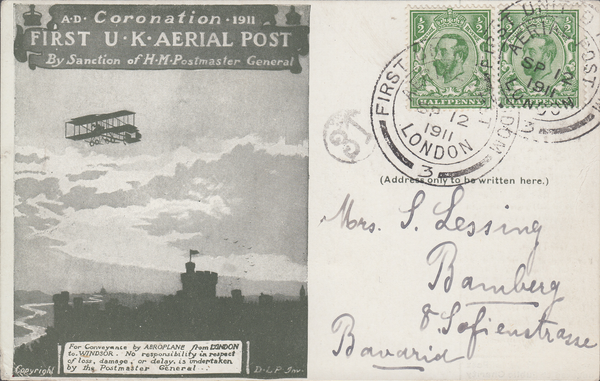 A·D· Coronation · 1911
FIRST U·K·AERIAL POST
By Sanction of H·M·Postmaster General
For Conveyance by AEROPLANE from LONDON
to WINDSOR. No responsibility in respect
of loss, damage, or delay, is undertaken
by the Postmaster General
Copyright
D·L·P Inv.
HALFPENNY
HALFPENNY
FIRST
SP 12
1911
LONDON
3
SP 12
1911
(Address only to be written here.)
Mrs. S. Lessing
Bamberg
8 Sofienstrasse
Bavaria